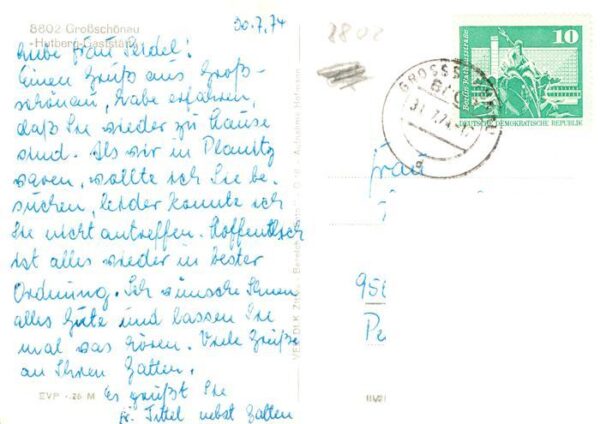 8802 Großschönau
-Hutberg-Gaststätte
30.7.74
Liebe Frau Seidel!
Einen Gruß aus Groß-
schönau, habe erfahren,
daß Sie wieder zu Hause
sind. Als wir in Planitz
waren, wollte ich Sie be-
suchen, leider konnte ich
Sie nicht antreffen. Hoffentlich
ist alles wieder in bester
Ordnung. Ich wünsche Ihnen
alles Gute und lassen Sie
mal was hören. Viele Grüße
an Ihren Gatten.
Es grüßt Sie
Fr. Tittel nebst Gatten
EVP -.26 M
8802
10
Berlin, Rathausstraße
DEUTSCHE DEMOKRATISCHE REPUBLIK
31.7.74
Frau
95